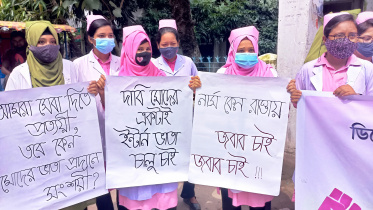 আমরা সেবা দানে
প্রত্যয়ী,
তবে কেন,
মোদের ভাতা প্রদানে
সংশয়ী?
দাবি মোদের
একটাই
ইন্টার্ন ভাতা
চালু চাই
নার্স কেন রাস্তায়
জবাব চাই
জবাব চাই !!!